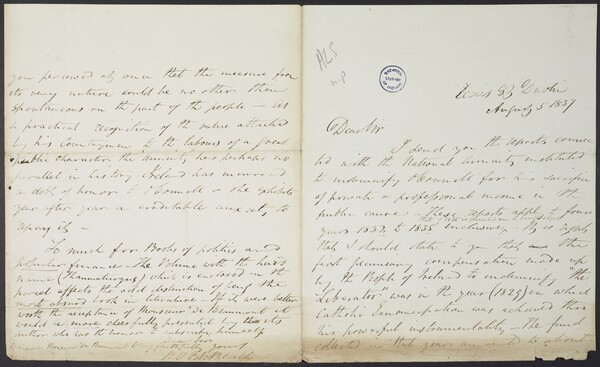 Dublin
August 5 1837
Dear Sir
I send you the reports connec
ted with the National Annuity instituted
to indemnify O'Connell for his sacrifice
of private & professional income in the
public cause - These reports apply to four
years 1832 to 1835 inclusive.
that I should state to you that the
first pecuniary compensation made up
by the People of Ireland to indemnify "the
Liberator" was in the year (1829) in which
Catholic Emancipation was achieved thro
his powerful instrumentality - the fund
collected in that year amounted to about
you perceived at once that the measure from
its very nature could be no other than
spontaneous on the part of the people - as
a practical recognition of the value attached
by his countrymen to the labours of a great
public character the annuity has perhaps no
parallel in history Ireland has incurred
a debt of honor to O'Connell & she exhibits
year after year a creditable anxiety to
repay it -
So much for Books of politics and
popular finance - The Volume with the hard
name (Thaumaturgus) which is enclosed in the
parcel affects the odd distinction of being the
most absurd book in literature - If it were better
worth the acceptance of Monsieur De Beaumont it
would be more cheerfully presented by the
author who has the honor to subscribe himself
ALS
n.p
NATIONAL LIBRARY OF IRELAND